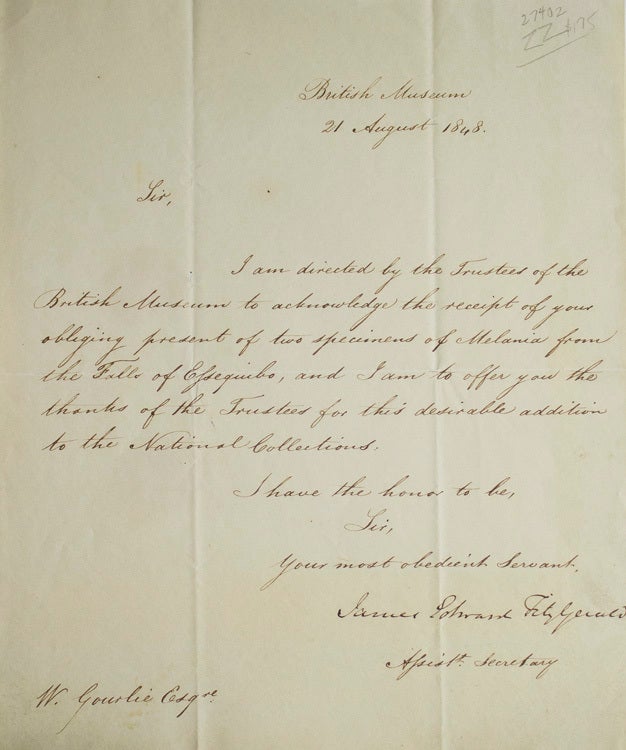 27402
ZZ $175
British Museum
21 August 1848.
Sir,
I am directed by the Trustees of the
British Museum to acknowledge the receipt of your
obliging present of two specimens of Melania from
the Falls of Eſsequibo, and I am to offer you the
thanks of the Trustees for this desirable addition
to the National Collections.
I have the honor to be,
Sir,
Your most obedient Servant.
James Edward FitzGerald
Aſsist.t Secretary
W. Gourlie Esqre.